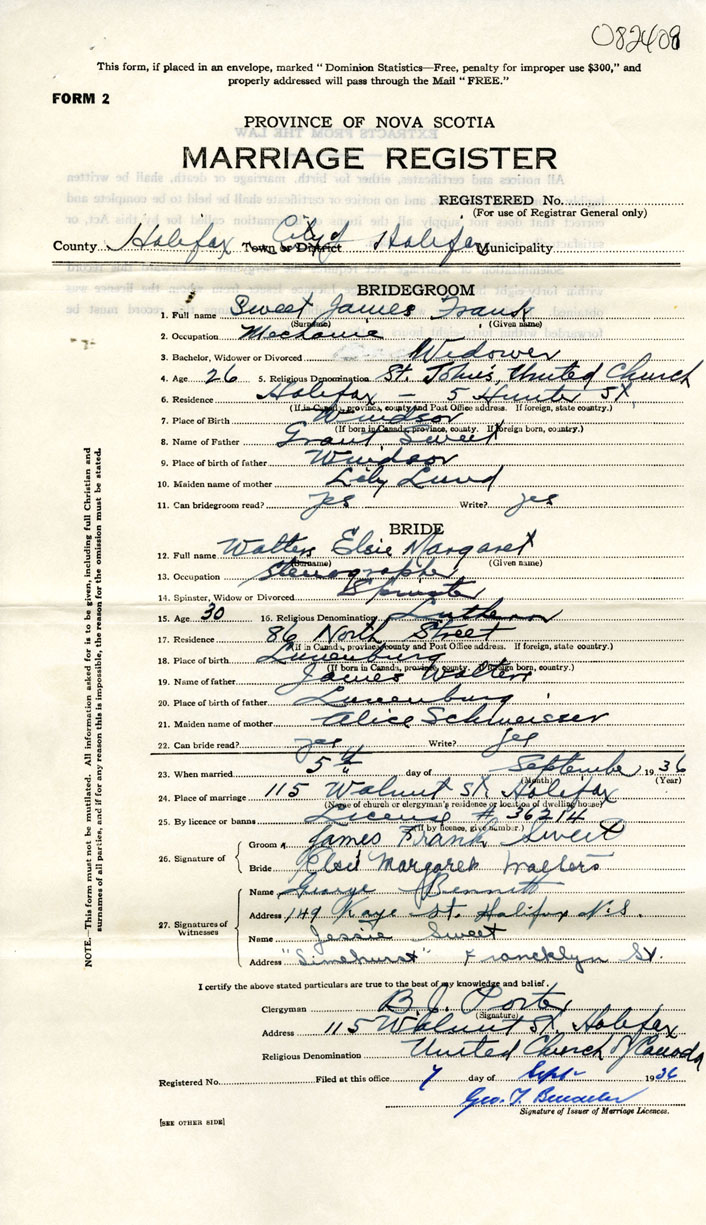 082408
This form, if placed in an envelope, marked "Dominion Statistics—Free, penalty for improper use $300," and
properly addressed will pass through the Mail "FREE."
FORM 2
PROVINCE OF NOVA SCOTIA
MARRIAGE REGISTER
REGISTERED No.
(For use of Registrar General only)
County Halifax City of Town or District Halifax Municipality
BRIDEGROOM
1. Full name Sweet James Frank
(Surname) (Given name)
2. Occupation Mechanic
3. Bachelor, Widower or Divorced Widower
4. Age 26 5. Religious Denomination St. John's, United Church
6. Residence Halifax - 5 Hunter St
(If in Canada, province, county and Post Office address. If foreign, state country.)
7. Place of Birth Windsor
(If born in Canada, province, county. If foreign born, country.)
8. Name of Father Grant Sweet
9. Place of birth of father Windsor
10. Maiden name of mother Lily Lund
11. Can bridegroom read? yes Write? yes
BRIDE
12. Full name Walters Elsie Margaret
(Surname) (Given name)
13. Occupation Stenographer
14. Spinster, Widow or Divorced Spinster
15. Age 30 16. Religious Denomination Lutheran
17. Residence 86 North Street
(If in Canada, province, county and Post Office address. If foreign, state country.)
18. Place of birth Lunenburg
(If born in Canada, province, county. If foreign born, country.)
19. Name of father James Walters
20. Place of birth of father Lunenburg
21. Maiden name of mother Alice Schmeisser
22. Can bride read? yes Write? yes
23. When married 5th day of September 1936
(Month) (Year)
24. Place of marriage 115 Walnut St. Halifax
(Name of church or clergyman's residence or location of dwelling house)
25. By licence or banns License # 36214
(If by licence, give number.)
26. Signature of
Groom James Frank Sweet
Bride Elsie Margaret Walters
27. Signatures of Witnesses
Name George Bennett
Address 149 Kaye St. Halifax N.S.
Name Jessie Sweet
Address "Simehurst" Francklyn St.
I certify the above stated particulars are true to the best of my knowledge and belief.
Clergyman B. J. Porter
(Signature)
Address 115 Walnut St., Halifax
Religious Denomination United Church of Canada
Registered No. Filed at this office 7 day of Sept 1936
Geo. T.
Signature of Issuer of Marriage Licences.
[SEE OTHER SIDE]
NOTE.—This form must not be mutilated. All information asked for is to be given, including full Christian and
surnames of all parties, and if for any reason this is impossible, the reason for the omission must be stated.